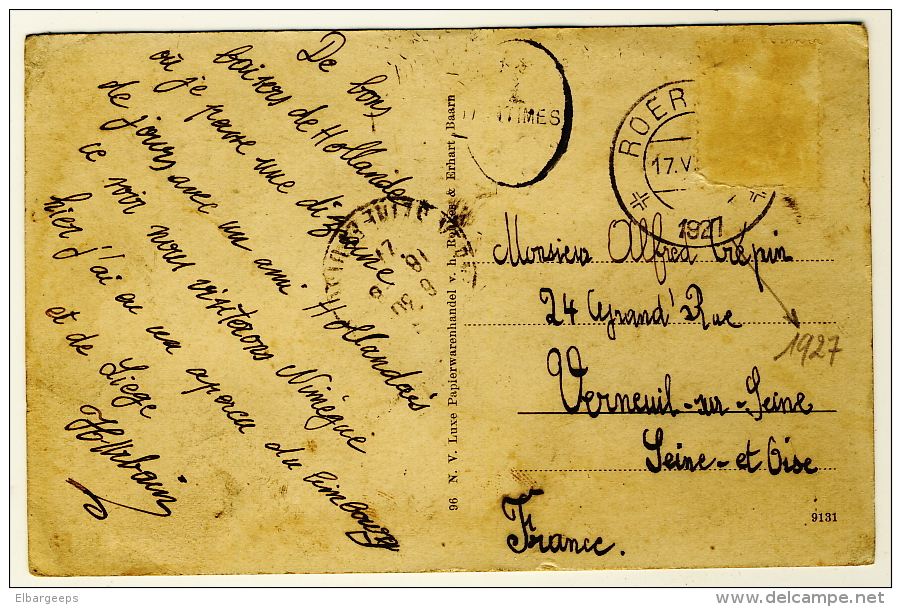 De bons
baisers de Hollande
où je passe une dizaine
de jours avec un ami Hollandais
ce soir nous visiterons Nimègue
hier j'ai eu un aperçu du Limbourg
et de Liège
HUrbain
96 N. V. Luxe Papierwarenhandel v. h. & Erhart, Baarn
TIMES
ROER
17.V
1927
Monsieur Alfred Crépin
24 Grand' Rue
1927
Verneuil-sur-Seine
Seine-et Oise
France.
9131
Elbargeeps
delcampe.net